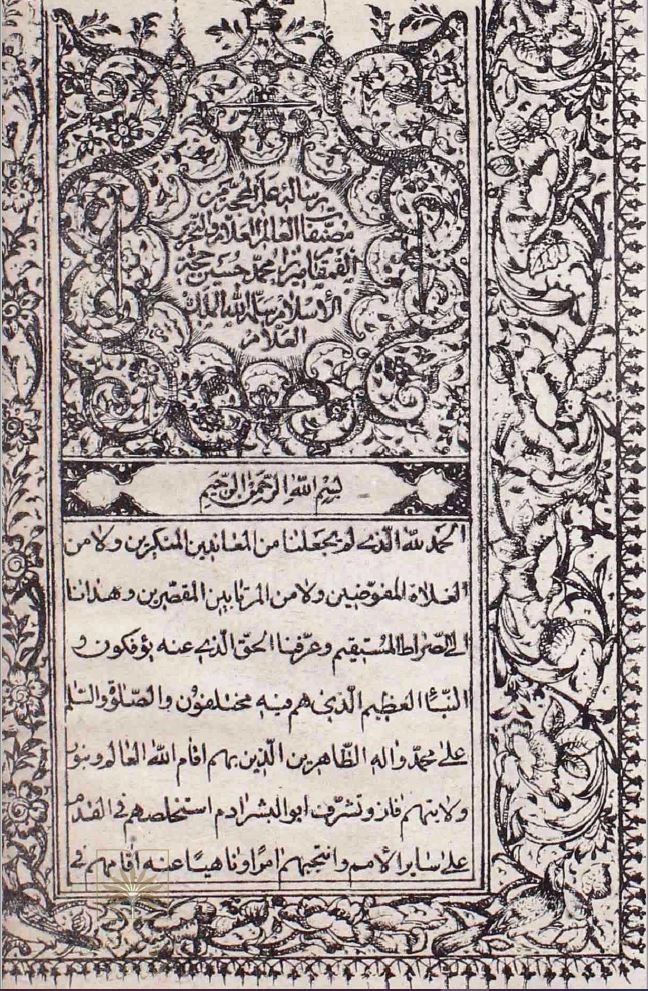 رسالة علم المحجة
مصنفها العالم العلامة والنحرير
القمقام ميرزا محمد حسين حجة
الإسلام سلمه الله الملك
العلام
بسم الله الرحمن الرحيم
الحمد لله الذی لم یجعلنا من المعاندین المنکرین ولا من
الغلاة المفوضین ولا من المرتابین المقصرین وهدانا
الی الصراط المستقیم وعرفنا الحق الذی عنه یؤفکون و
النبأ العظیم الذی هم فیه مختلفون والصلوة والسلم
علی محمد واله الطاهرین الذین بهم اقام الله العالم وبنور
ولایتهم فاز وتشرف ابو البشر ادم استخلصهم فی القدم
علی سایر الامم وانتجبهم امرا وناهیا عنه اقامهم فی